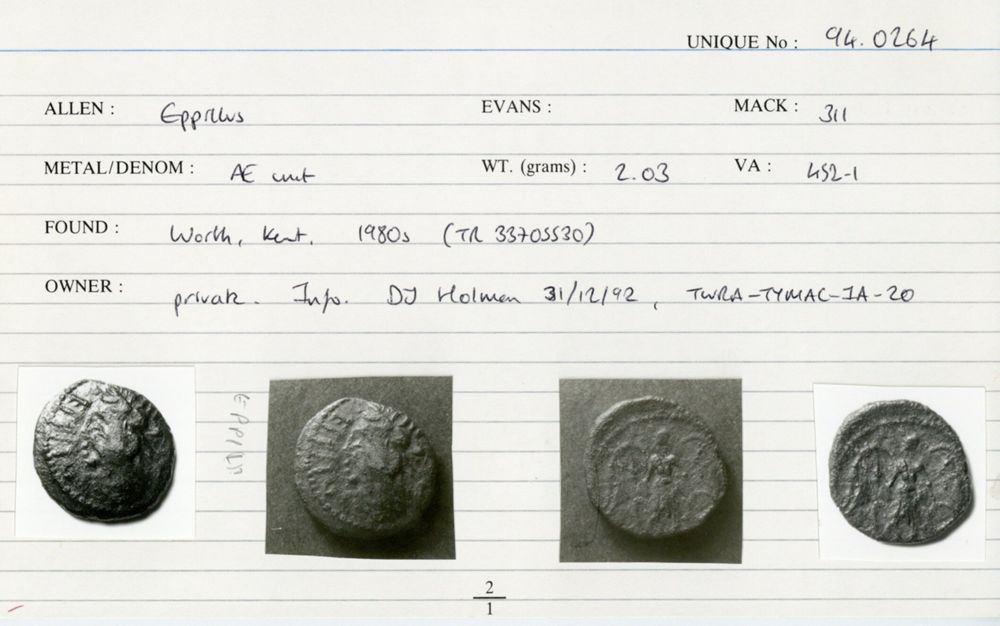 UNIQUE No : 94.0264
ALLEN : Eppillus EVANS : MACK : 311
METAL/DENOM : AE unit WT. (grams) : 2.03 VA : 452-1
FOUND : Worth, Kent. 1980s (TR 33705530)
OWNER : private. Info. DJ Holman 31/12/92, TWRA-TYMAC-IA-20
2
1